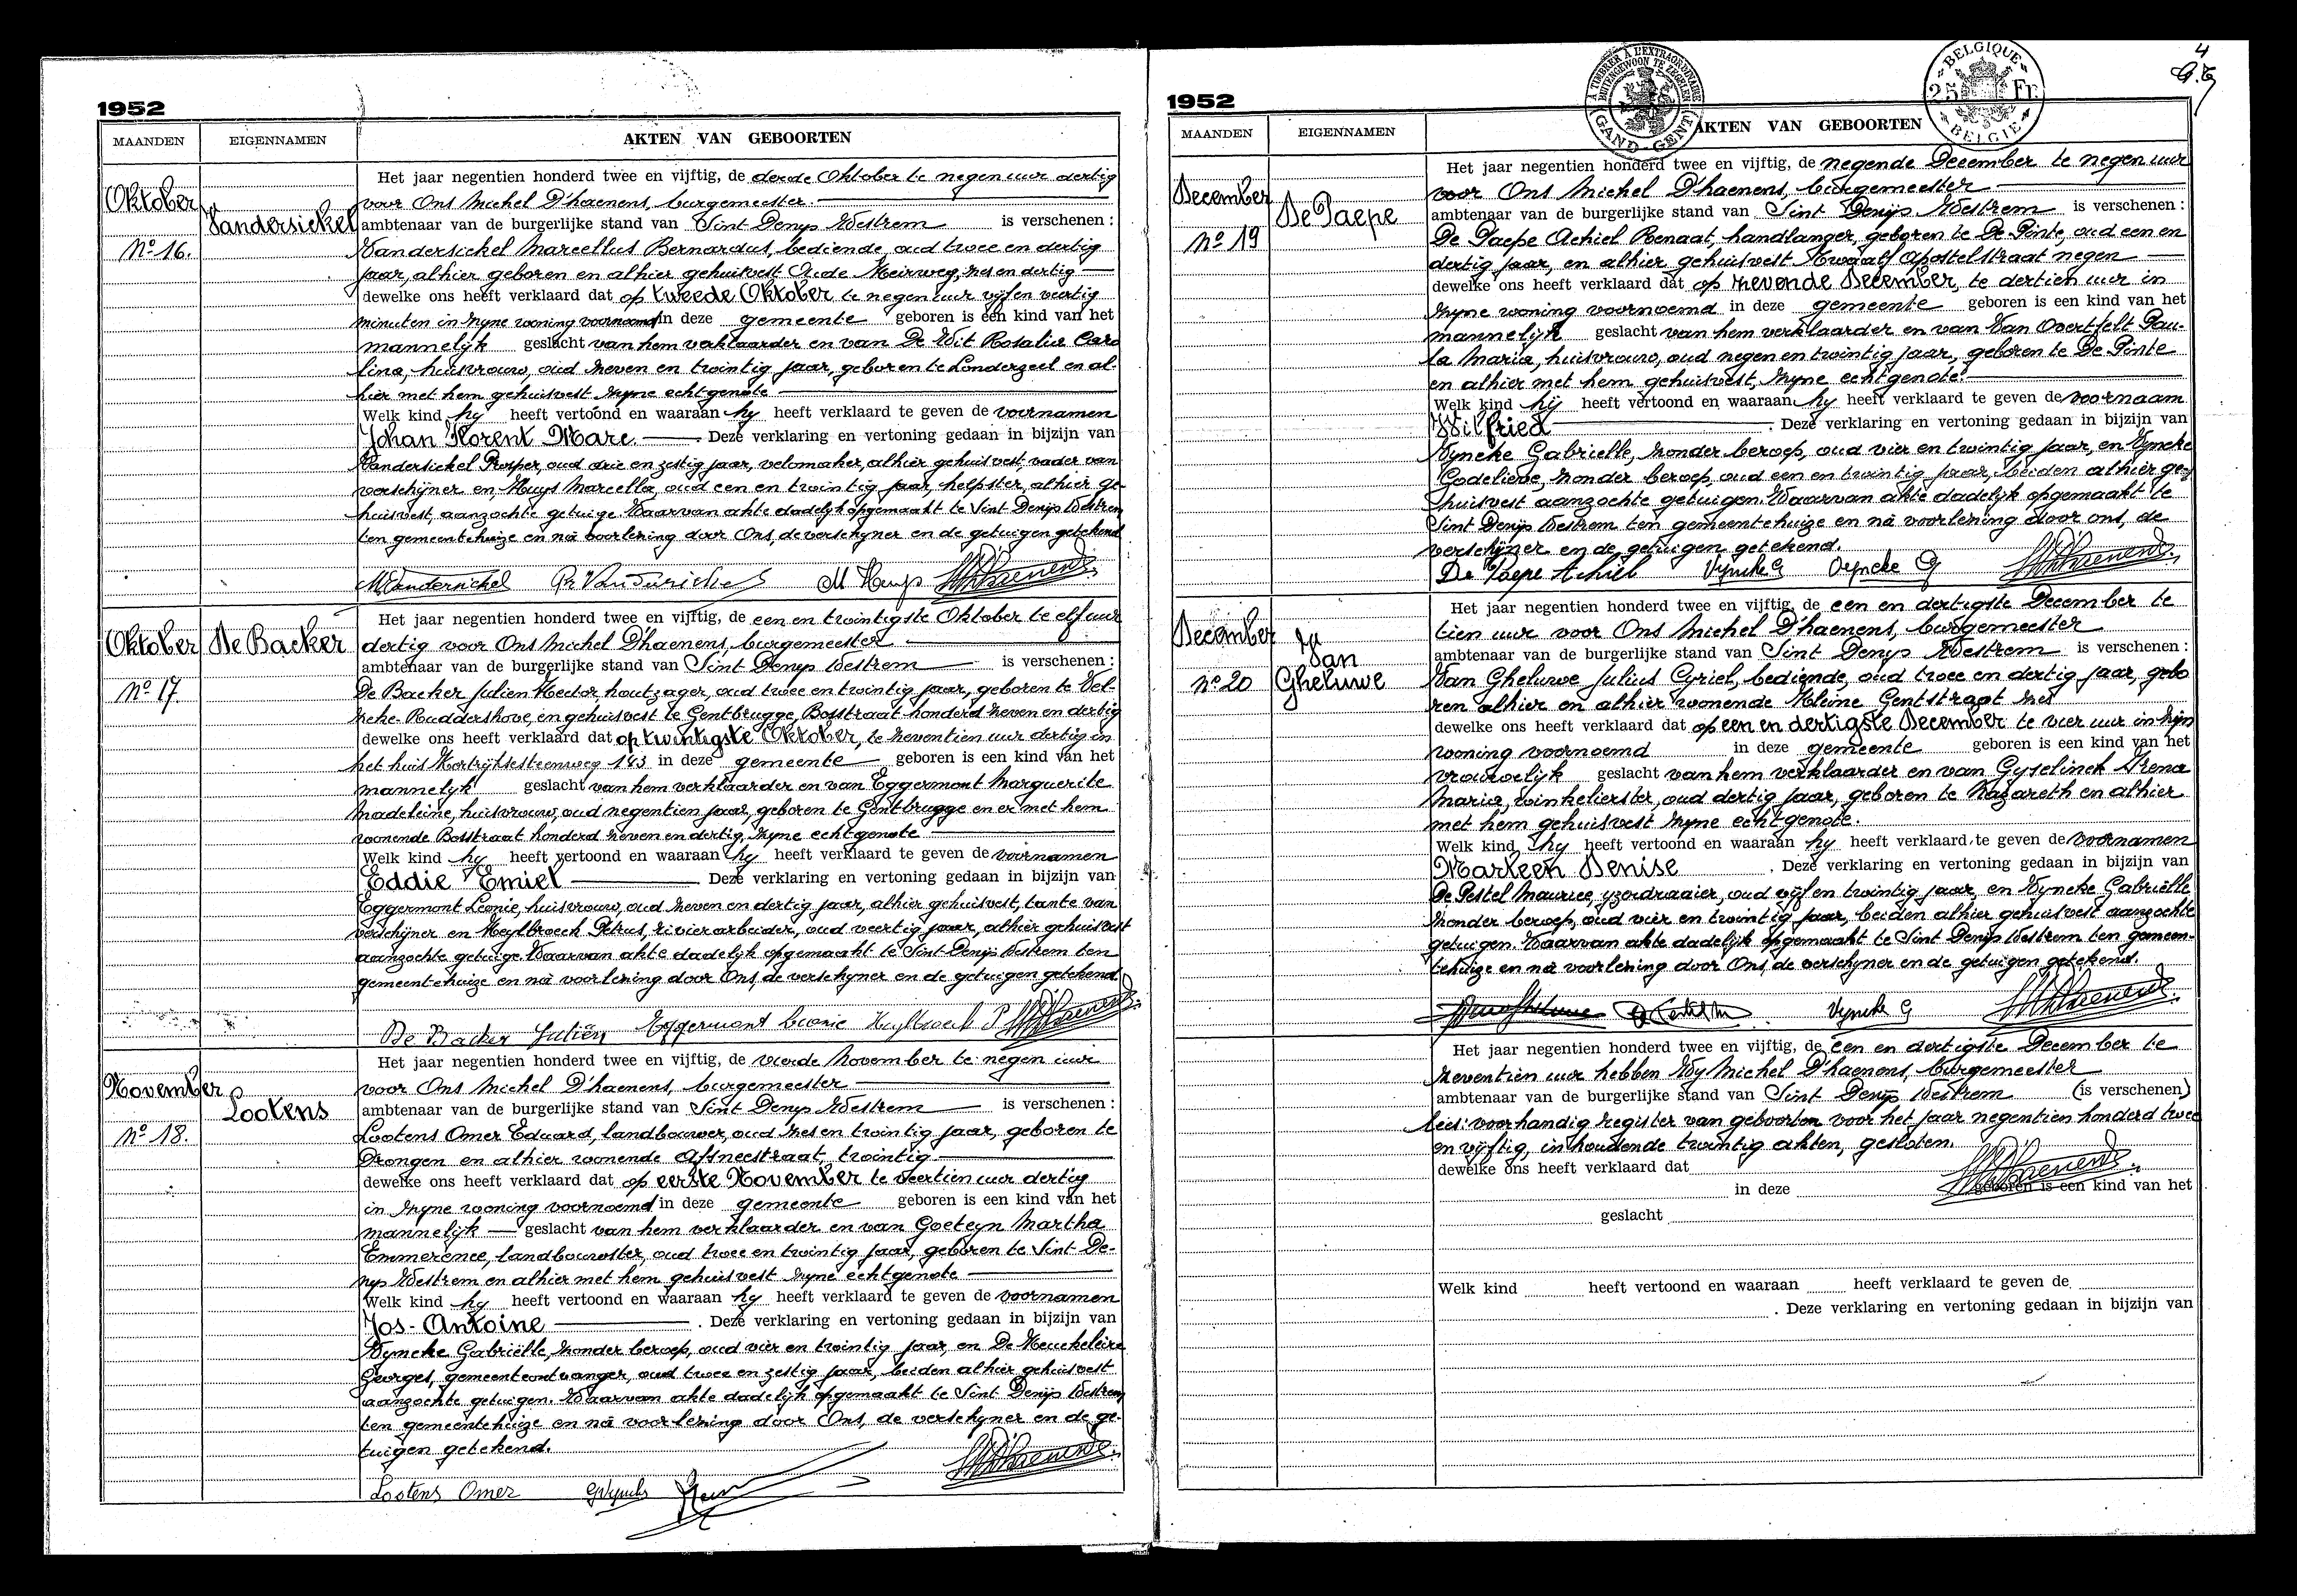 1952
MAANDEN EIGENNAMEN AKTEN VAN GEBOORTEN
Oktober
No 16.
Vandersickel
Het jaar negentien honderd twee en vijftig, de derde Oktober te negen uur dertig
voor Ons Michel D'haenens, burgemeester.
ambtenaar van de burgerlijke stand van Sint Denys Westrem is verschenen :
Vandersickel Marcellus Bernardus, bediende, oud twee en dertig
jaar, alhier geboren en alhier gehuisvest Oude Heirweg, zes en dertig
dewelke ons heeft verklaard dat op tweede Oktober te negen uur vijf en veertig
minuten in zyne woning voornoemd in deze gemeente geboren is een kind van het
mannelyk geslacht van hem verklaarder en van De Wit Rosalia Caro
lina, huisvrouw, oud zeven en twintig jaar, geboren te Londerzeel en al-
hier met hem gehuisvest zyne echtgenote
Welk kind hy heeft vertoond en waaraan hy heeft verklaard te geven de voornamen
Johan Florent Marc. Deze verklaring en vertoning gedaan in bijzijn van
Vandersickel Prosper, oud drie en zestig jaar, velomaker, alhier gehuisvest, vader van
verschijner en Huys Marcella, oud een en twintig jaar, helpster, alhier ge-
huisvest, aanzochte getuige. Waarvan akte dadelyk opgemaakt te Sint Denijs Westrem
ten gemeentehuize en nà voorlezing door Ons, de verschyner en de getuigen getekend
MVandersickel Pr Vandersickel M Huys MD'haenens
Oktober
No 17
De Backer
Het jaar negentien honderd twee en vijftig, de een en twintigste Oktober te elf uur
dertig voor Ons Michel D'haenens, burgemeester
ambtenaar van de burgerlijke stand van Sint Denys Westrem is verschenen :
De Backer Julien Hector houtzager, oud twee en twintig jaar, geboren te Vel-
zeke-Ruddershove, en gehuisvest te Gentbrugge, Bosstraat honderd zeven en dertig
dewelke ons heeft verklaard dat op twintigste Oktober, te zeventien uur dertig in
het huis Kortrijksesteenweg 143 in deze gemeente geboren is een kind van het
mannelyk geslacht van hem verklaarder en van Eggermont Marguerite
Madeleine, huisvrouw, oud negentien jaar, geboren te Gentbrugge en er met hem
wonende Bosstraat honderd zeven en dertig, zyne echtgenote
Welk kind hy heeft vertoond en waaraan hy heeft verklaard te geven de voornamen
Eddie Emiel Deze verklaring en vertoning gedaan in bijzijn van
Eggermont Leonie, huisvrouw, oud zeven en dertig jaar, alhier gehuisvest, tante van
verschijner en Heylbroeck Petrus, rivierarbeider, oud veertig jaar, alhier gehuisvest
aanzochte getuige. Waarvan akte dadelijk opgemaakt te Sint Denijs Westrem ten
gemeentehuize en nà voorlezing door Ons, de verschyner en de getuigen getekend.
De Backer Juliën Eggermont Leonie Heylbroeck P MD'haenens
November
No 18.
Lootens
Het jaar negentien honderd twee en vijftig, de vierde November te negen uur
voor Ons Michel D'haenens, burgemeester
ambtenaar van de burgerlijke stand van Sint Denys Westrem is verschenen :
Lootens Omer Eduard, landbouwer, oud zes en twintig jaar, geboren te
Drongen en alhier wonende Afsneestraat, twintig
dewelke ons heeft verklaard dat op eerste November te veertien uur dertig
in zyne woning voornoemd in deze gemeente geboren is een kind van het
mannelyk geslacht van hem verklaarder en van Goeteyn Martha
Emmerence, landbouwster, oud twee en twintig jaar, geboren te Sint De-
nys Westrem en alhier met hem gehuisvest zyne echtgenote
Welk kind hy heeft vertoond en waaraan hy heeft verklaard te geven de voornamen
Jos-Antoine . Deze verklaring en vertoning gedaan in bijzijn van
Vyncke Gabriëlle, zonder beroep, oud vier en twintig jaar, en De Keuckeleire
Georges, gemeenteontvanger, oud twee en zestig jaar, beiden alhier gehuisvest
aanzochte getuigen. Waarvan akte dadelijk opgemaakt te Sint Denijs Westrem
ten gemeentehuize en nà voorlezing door Ons, de verschyner en de ge-
tuigen getekend.
Lootens Omer GVyncke MD'haenens
4
1952
A TIMBRER A L'EXTRAORDINAIRE
BUITENGEWOON TE ZEGELEN
GAND - GENT
BELGIQUE
25 Fr.
BELGIE
MAANDEN EIGENNAMEN AKTEN VAN GEBOORTEN
December
No 19
De Paepe
Het jaar negentien honderd twee en vijftig, de negende December te negen uur
voor Ons Michel D'haenens, burgemeester
ambtenaar van de burgerlijke stand van Sint Denijs Westrem is verschenen :
De Paepe Achiel Renaat, handlanger, geboren te De Pinte, oud een en
dertig jaar, en alhier gehuisvest Twaalf Apostelstraat negen
dewelke ons heeft verklaard dat op zevende December, te dertien uur in
zyne woning voornoemd in deze gemeente geboren is een kind van het
mannelijk geslacht van hem verklaarder en van Van Overtfelt Pau-
la Maria, huisvrouw, oud negen en twintig jaar, geboren te De Pinte
en alhier met hem gehuisvest, zyne echtgenote.
Welk kind hij heeft vertoond en waaraan hy heeft verklaard te geven de voornaam
Wilfried . Deze verklaring en vertoning gedaan in bijzijn van
Vyncke Gabrielle, zonder beroep, oud vier en twintig jaar, en Vyncke
Godelieve, zonder beroep, oud een en twintig jaar, beiden alhier ge-
huisvest aanzochte getuigen. Waarvan akte dadelyk opgemaakt te
Sint Denijs Westrem ten gemeentehuize en nà voorlezing door ons, de
verschijner en de getuigen getekend.
De Paepe Achiel Vyncke G Vyncke G MD'haenens
December
No 20
Van
Gheluwe
Het jaar negentien honderd twee en vijftig, de een en dertigste December te
tien uur voor Ons Michel D'haenens, burgemeester
ambtenaar van de burgerlijke stand van Sint Denys Westrem is verschenen :
Van Gheluwe Julius Cyriel, bediende, oud twee en dertig jaar, gebo
ren alhier en alhier wonende Kleine Gentstraat zes
dewelke ons heeft verklaard dat op een en dertigste December te vier uur in zijn
woning voornoemd in deze gemeente geboren is een kind van het
vrouwelijk geslacht van hem verklaarder en van Gyselinck Irena
Maria, winkelierster, oud dertig jaar, geboren te Nazareth en alhier
met hem gehuisvest zyne echtgenote.
Welk kind hy heeft vertoond en waaraan hy heeft verklaard te geven de voornamen
Marleen Denise . Deze verklaring en vertoning gedaan in bijzijn van
De Pestel Maurice, yzerdraaier, oud vijf en twintig jaar, en Vyncke Gabriëlle
zonder beroep, oud vier en twintig jaar, beiden alhier gehuisvest aanzochte
getuigen. Waarvan akte dadelijk opgemaakt te Sint Denijs Westrem ten gemeen-
tehuize en nà voorlezing door Ons, de verschyner en de getuigen getekend.
Vyncke G MD'haenens
Het jaar negentien honderd twee en vijftig, de een en dertigste December te
zeventien uur hebben Wy Michel D'haenens, burgemeester
ambtenaar van de burgerlijke stand van Sint Denijs Westrem (is verschenen)
lees: voorhandig register van geboorten voor het jaar negentien honderd twee
en vijftig, inhoudende twintig akten, gesloten.
dewelke ons heeft verklaard dat MD'haenens
in deze geboren is een kind van het
geslacht
Welk kind heeft vertoond en waaraan heeft verklaard te geven de
. Deze verklaring en vertoning gedaan in bijzijn van